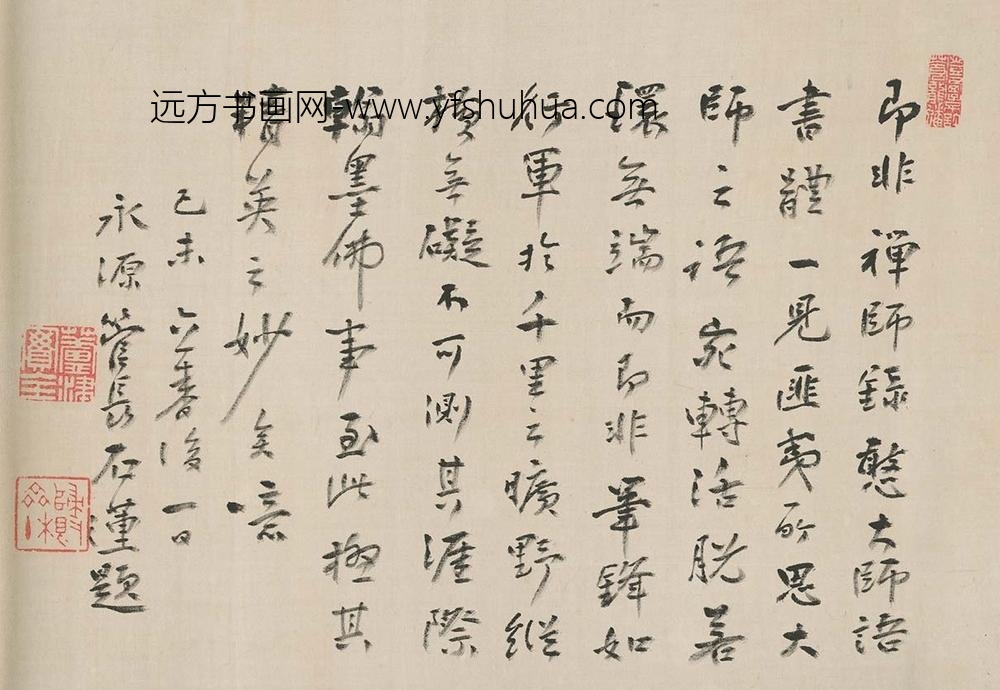 即非禪師錄憨大師語
書體一見匪夷所思大
師之語宛轉活脫若
環無端而即非筆鋒如
行軍於千里之曠野縱
橫無礙不可測其涯際
翰墨佛事至此極其
精英之妙矣噫
己未六春後一日
永源管長石蓮題
远方书画网-www.yfshuhua.com